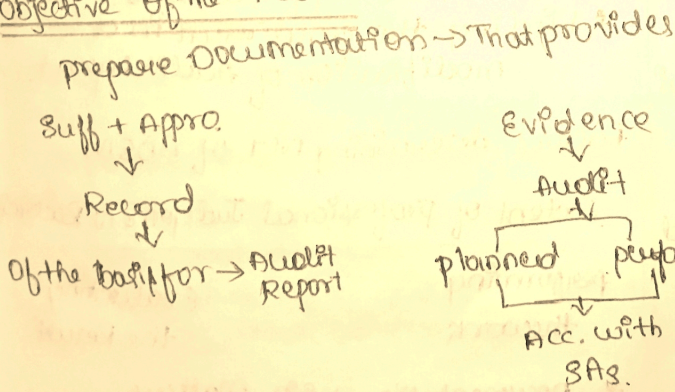 Objective of the
prepare Documentation → That provides
Suff + Appro.
↓
Record
↓
Of the basis for → Audit Report
Evidence
↓
Audit
↓
planned
Acc. with
SAs.